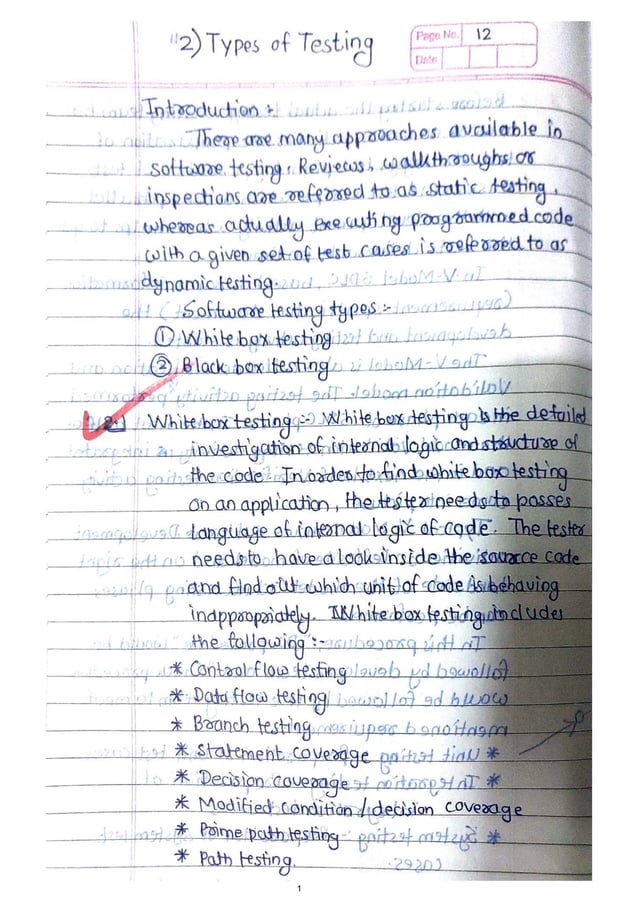 "2) Types of Testing
Page No. 12
Date
Introduction :-
There are many approaches available in
software testing. Reviews, walkthroughs or
inspections are referred to as static testing,
whereas actually executing programmed code
with a given set of test cases is referred to as
dynamic testing.
Software testing types :-
① White box testing
② Black box testing
2.1 White box testing :- White box testing is the detailed
investigation of internal logic and structure of
the code. In order to find white box testing
on an application, the tester needs to posses
language of internal logic of code. The tester
needs to have a look inside the source code
and find out which unit of code is behaving
inappropriately. White box testing includes
the following :-
* Control flow testing
* Data flow testing
* Branch testing
* Statement coverage
* Decision coverage
* Modified condition / decision coverage
* Prime path testing
* Path testing.
1